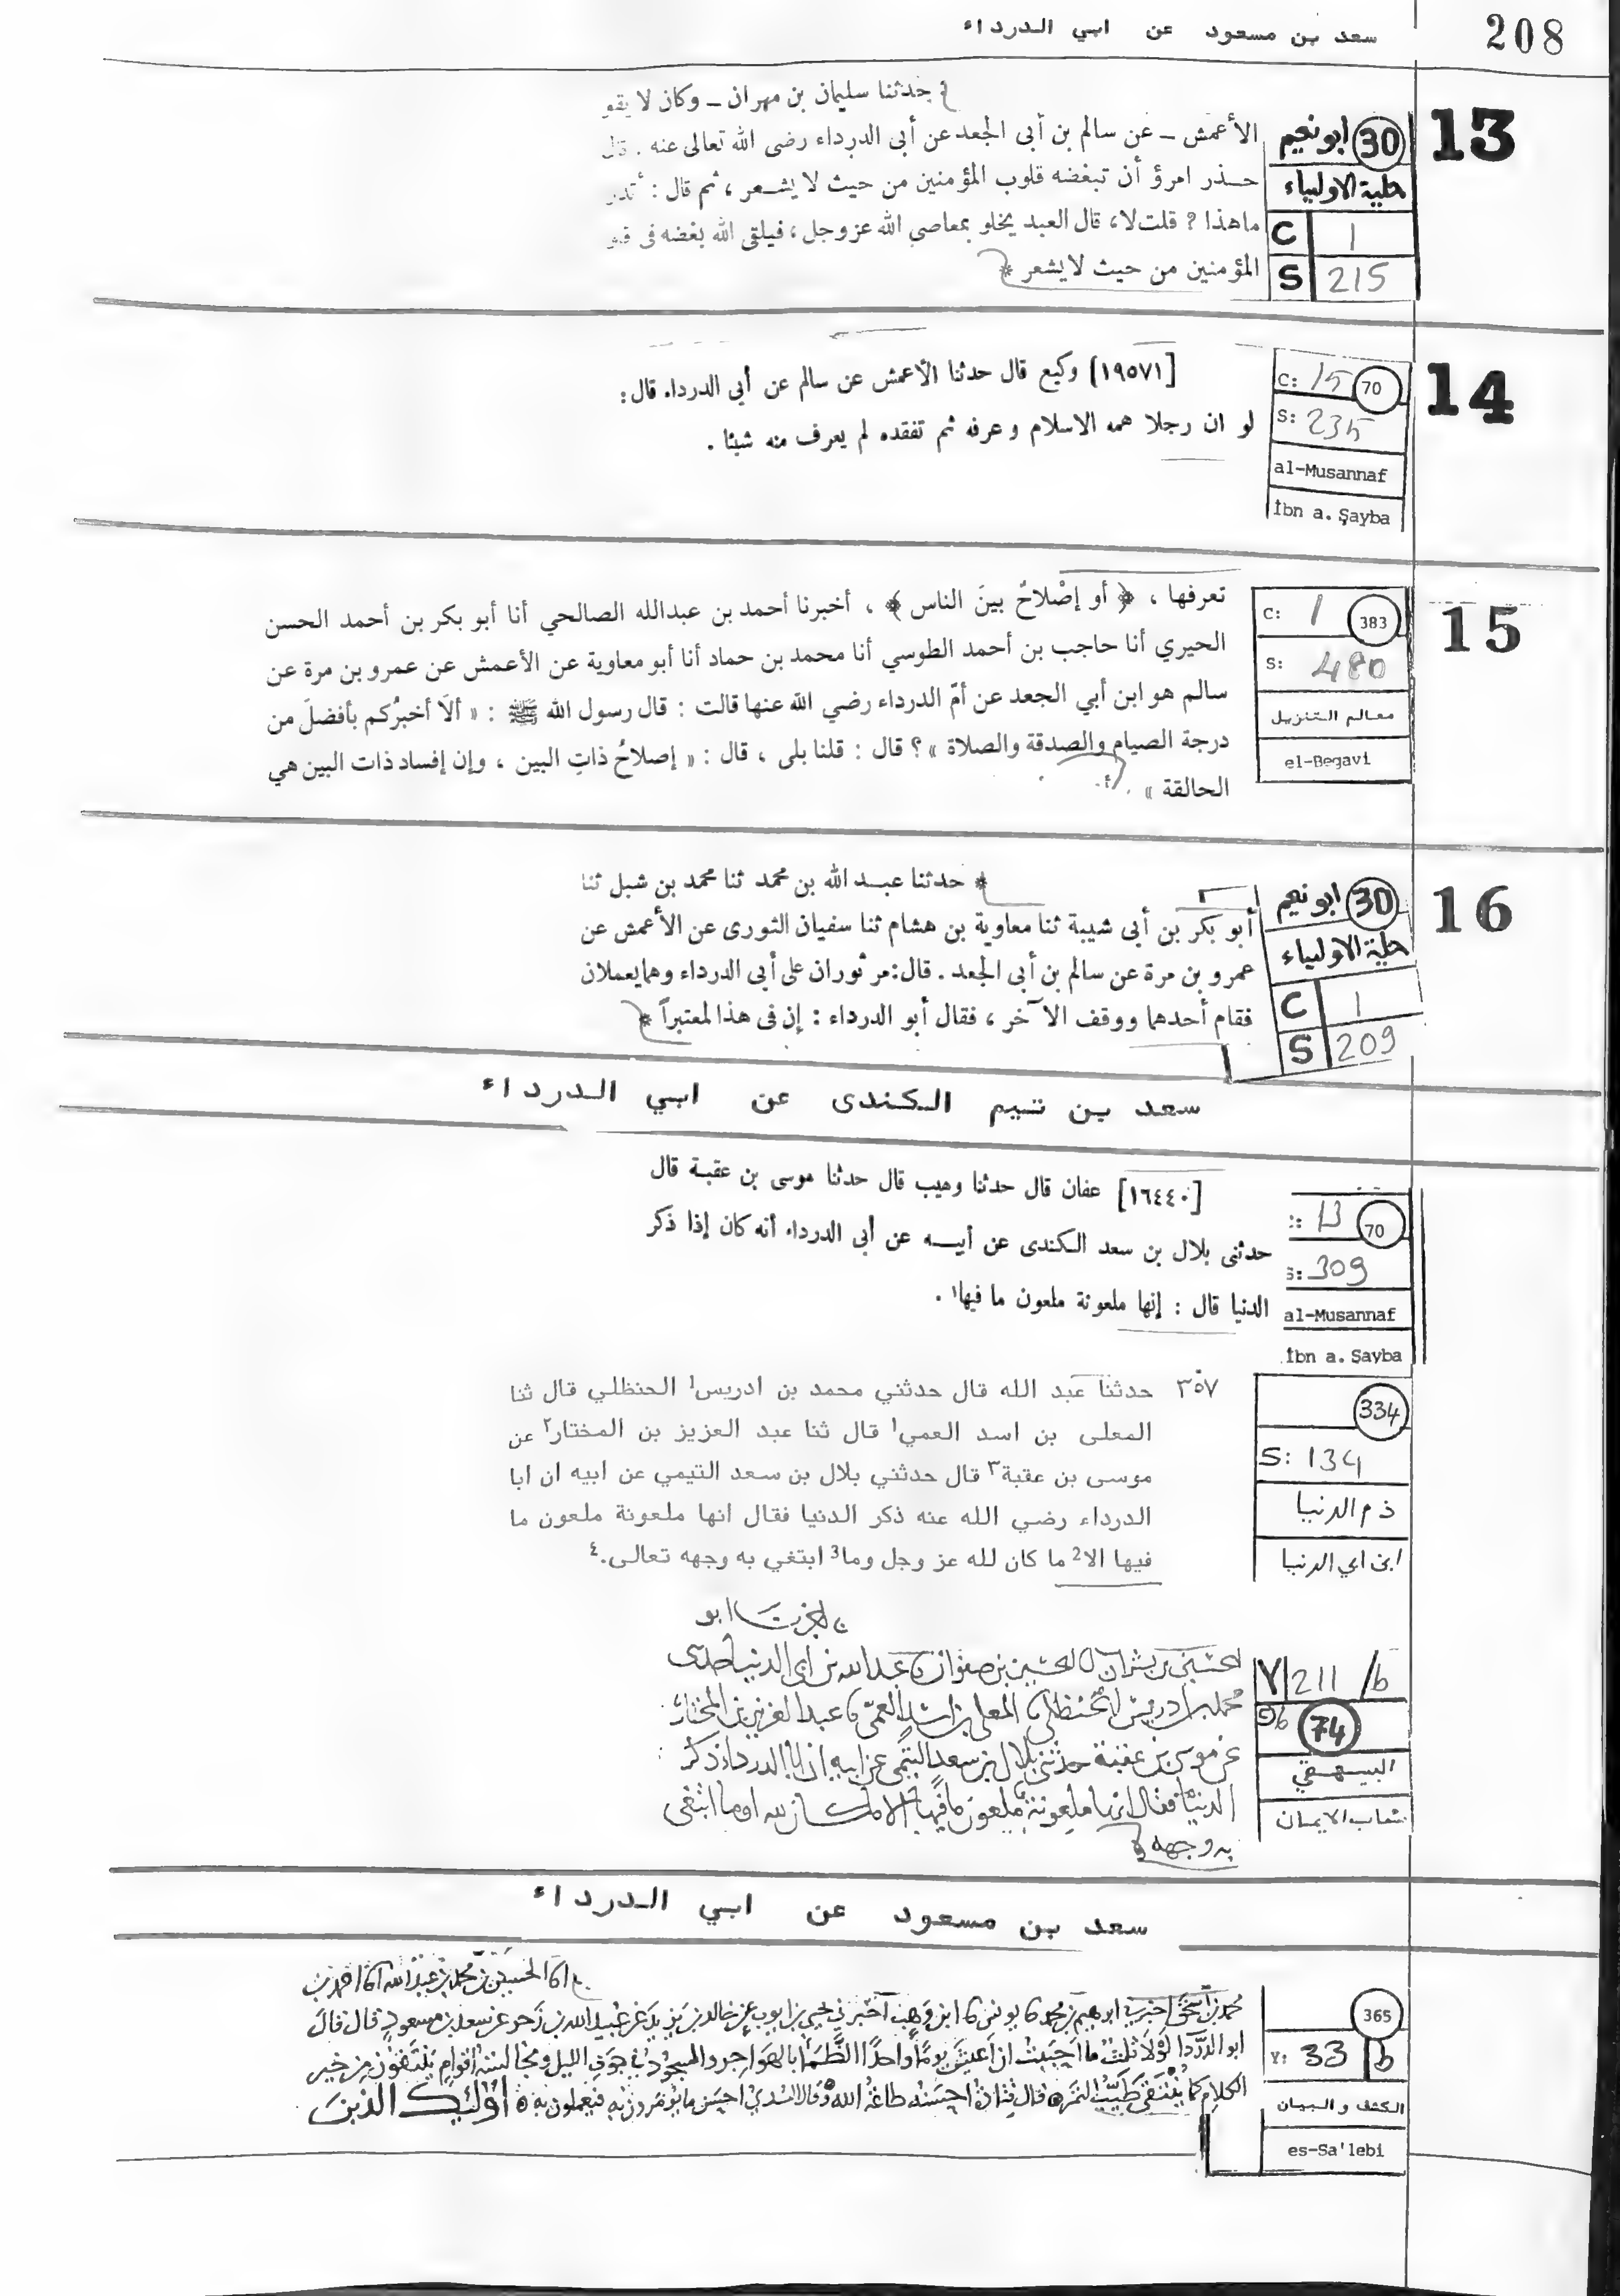 208
سعد بن مسعود عن ابي الدرداء
13
30 ابو نعيم
حلية الاولياء
C 1
S 215
حدثنا سليمان بن مهران ــ وكان لا يقو
الأعمش ــ عن سالم بن أبى الجعد عن أبى الدرداء رضى الله تعالى عنه . قال
حــذر امرؤ أن تبغضه قلوب المؤمنين من حيث لا يشــعر ، ثم قال : أتدر
ماهذا ؟ قلت لا ، قال العبد يخلو بمعاصى الله عز وجل ، فيلقى الله بغضه فى
المؤمنين من حيث لا يشعر *
14
C: 15 70
S: 235
al-Musannaf
İbn a. Şayba
[١٩٥٧١] وكيع قال حدثنا الأعمش عن سالم عن أبي الدرداء قال :
لو ان رجلا همه الاسلام و عرفه ثم تفقده لم يعرف منه شيئا .
15
C: 1 383
S: 480
معالم التنزيل
el-Begavi
تعرفها ، ﴿ أو إصْلاحٌ بينَ الناس ﴾ ، أخبرنا أحمد بن عبدالله الصالحي أنا أبو بكر بن أحمد الحسن
الحيري أنا حاجب بن أحمد الطوسي أنا محمد بن حماد أنا أبو معاوية عن الأعمش عن عمرو بن مرة عن
سالم هو ابن أبي الجعد عن أمّ الدرداء رضي الله عنها قالت : قال رسول الله ﷺ : « ألَا أخبرُكم بأفضلَ من
درجة الصيام والصدقة والصلاة » ؟ قال : قلنا بلى ، قال : « إصلاحُ ذاتِ البين ، وإن إفساد ذات البين هي
الحالقة » .
16
30 ابو نعيم
حلية الاولياء
C 1
S 209
* حدثنا عبــد الله بن محمد ثنا محمد بن شبل ثنا
أبو بكر بن أبى شيبة ثنا معاوية بن هشام ثنا سفيان الثورى عن الأعمش عن
عمرو بن مرة عن سالم بن أبى الجعد . قال : مر ثوران على أبى الدرداء وهما يعملان
فقام أحدهما ووقف الآخر ، فقال أبو الدرداء : إن فى هذا لمعتبراً *
سعد بن تيم الكندى عن ابي الدرداء
13 70
S: 309
al-Musannaf
İbn a. Şayba
[١٦٤٤٠] عفان قال حدثنا وهيب قال حدثنا موسى بن عقبة قال
حدثنى بلال بن سعد الكندى عن أبيــه عن أبى الدرداء أنه كان إذا ذكر
الدنيا قال : إنها ملعونة ملعون ما فيها١ .
334
S: 134
ذم الدنيا
ابن ابي الدنيا
٣٥٧ حدثنا عبد الله قال حدثني محمد بن ادريس١ الحنظلي قال ثنا
المعلى بن اسد العمي١ قال ثنا عبد العزيز بن المختار٢ عن
موسى بن عقبة٣ قال حدثني بلال بن سعد التيمي عن ابيه ان ابا
الدرداء رضي الله عنه ذكر الدنيا فقال انها ملعونة ملعون ما
فيها الا2 ما كان لله عز وجل وما3 ابتغي به وجهه تعالى.٤
Y 211 /b
74
البيهقي
شعاب الايمان
ابو
الحسين بن بشران الحسين بن صفوان عبدالله بن ابي الدنيا حدثنى
محمد بن ادريس الحنظلي المعلى بن اسد العمى عبد العزيز بن المختار
عن موسى بن عقبة حدثنى بلال بن سعد التيمى عن ابيه ان ابا الدرداء ذكر
الدنيا فقال انها ملعونة ملعون ما فيها الا ما كان لله او ما ابتغى
به وجهه
سعد بن مسعود عن ابي الدرداء
365
Y: 33 b
الكشف والبيان
es-Sa'lebi
الحسين بن محمد بن عبد الله احمد بن
محمد بن اسحق ابرهيم بن محمد يونس ابن وهب اخبرنى يحيى بن ايوب عن خالد بن يزيد عن عبيد الله بن زحر عن سعد بن مسعود قال قال
ابو الدردا لولا ثلث ما احببت ان اعيش يوما واحدا الظما بالهواجر والسجود في جوف الليل ومجالسة اقوام ينتقون من خير
الكلام كما ينتقى طيب التمر قال قتادة احسنه طاعة الله وقال السدي احسن ما يؤمرون به فيعملون به اولئك الذين